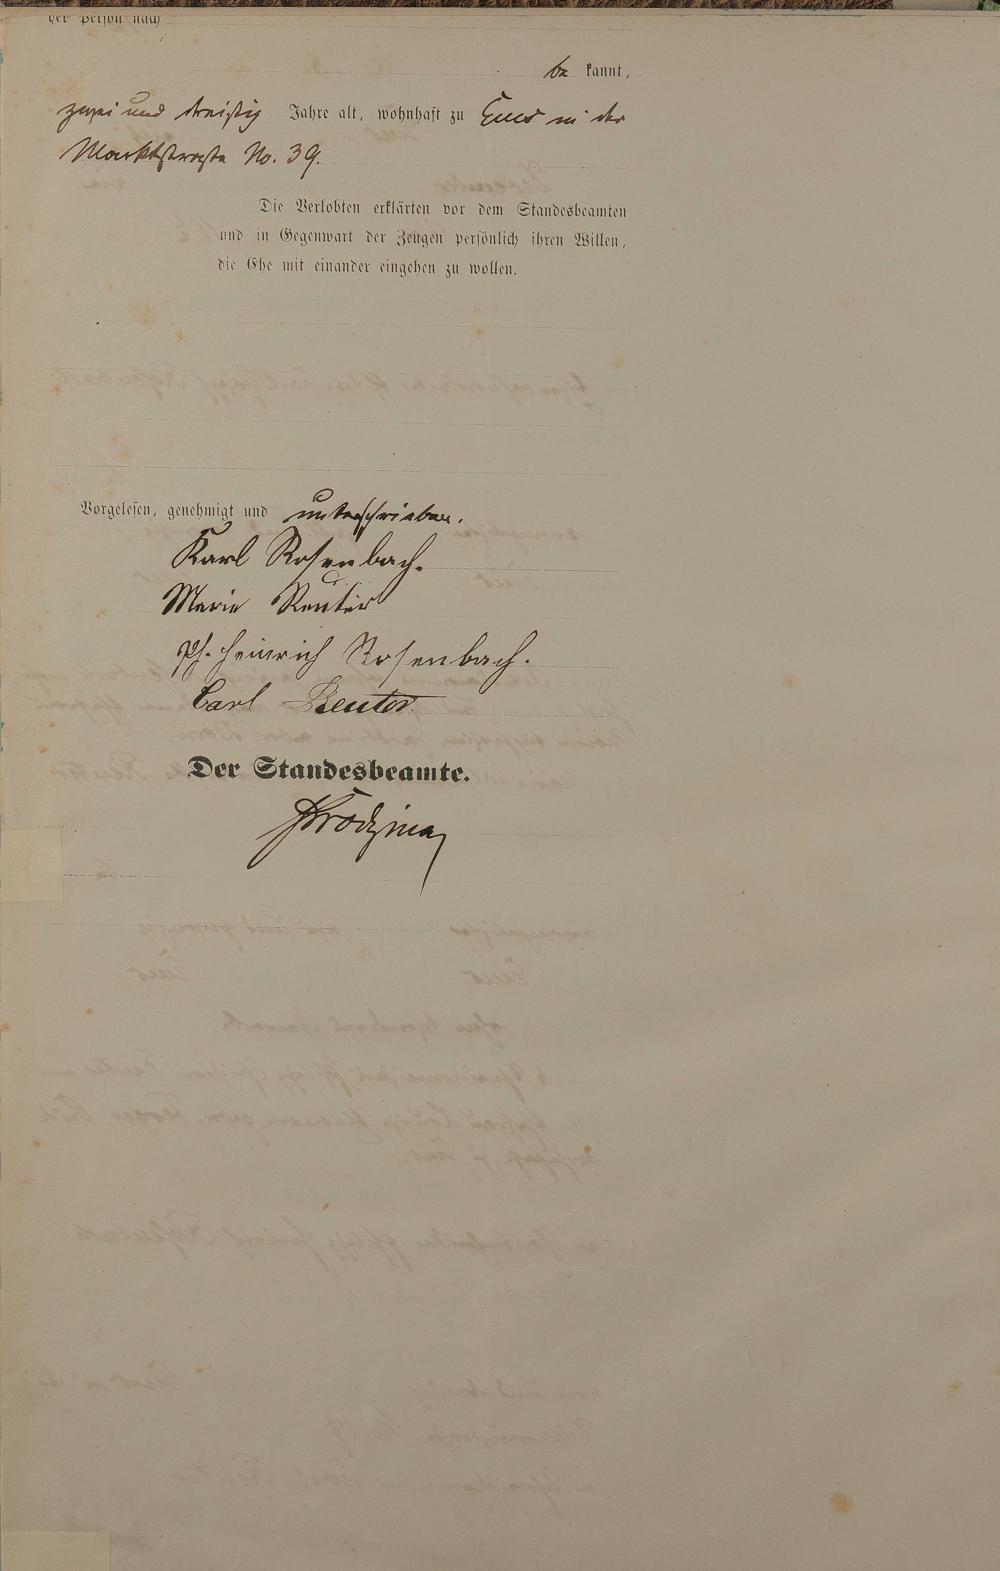 der Person nach
be kannt,
zwei und dreißig Jahre alt, wohnhaft zu Ems in der
Marktstraße No. 39.
Die Verlobten erklärten vor dem Standesbeamten
und in Gegenwart der Zeugen persönlich ihren Willen,
die Ehe mit einander eingehen zu wollen.
Vorgelesen, genehmigt und unterschrieben.
Karl Rosenbach.
Marie Reuter
Ph. Heinrich Rosenbach.
Carl Reuter
Der Standesbeamte.